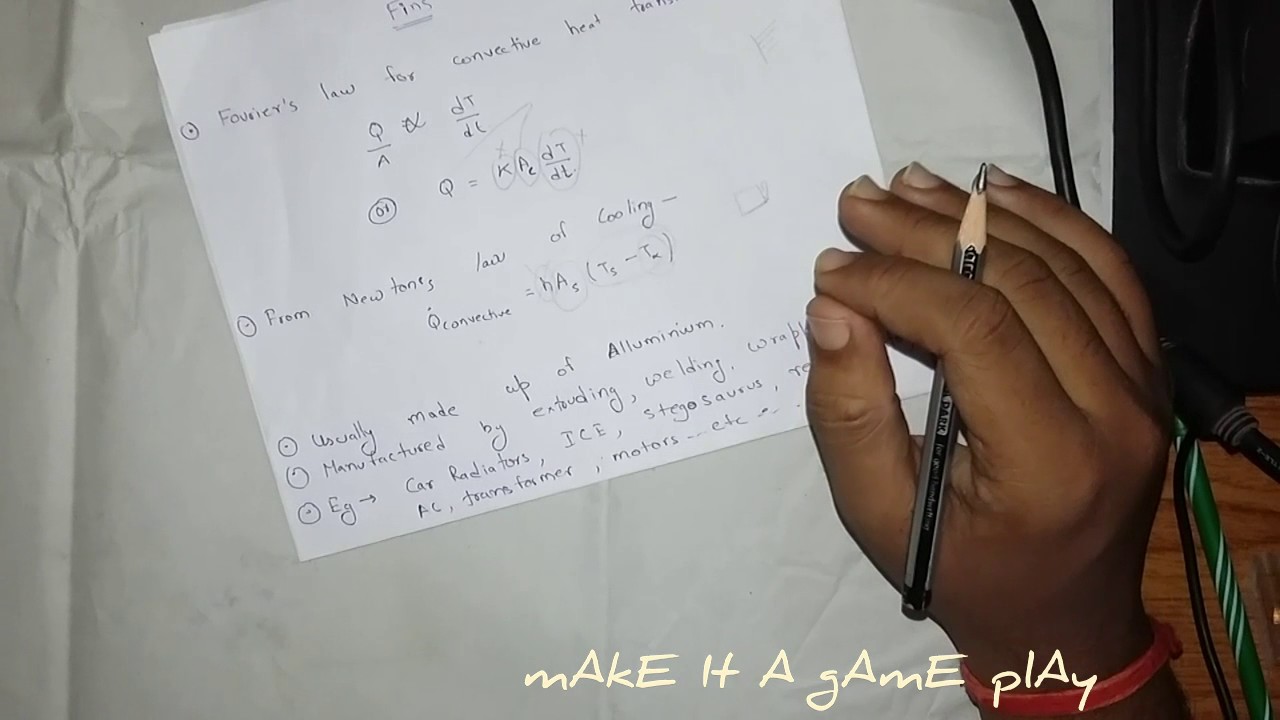 Fins
Fourier's law for convective heat trans.
Q/A ∝ dT/dt
(or) Q = K Ac dT/dt
From Newtons law of Cooling -
Q̇convective = hAs (Ts - T∝)
Usually made up of Alluminium.
Manufactured by extouding, welding,
Eg → Car Radiators, ICE, stegosaurus,
AC, transformer, motors --- etc
mAkE It A gAmE plAy